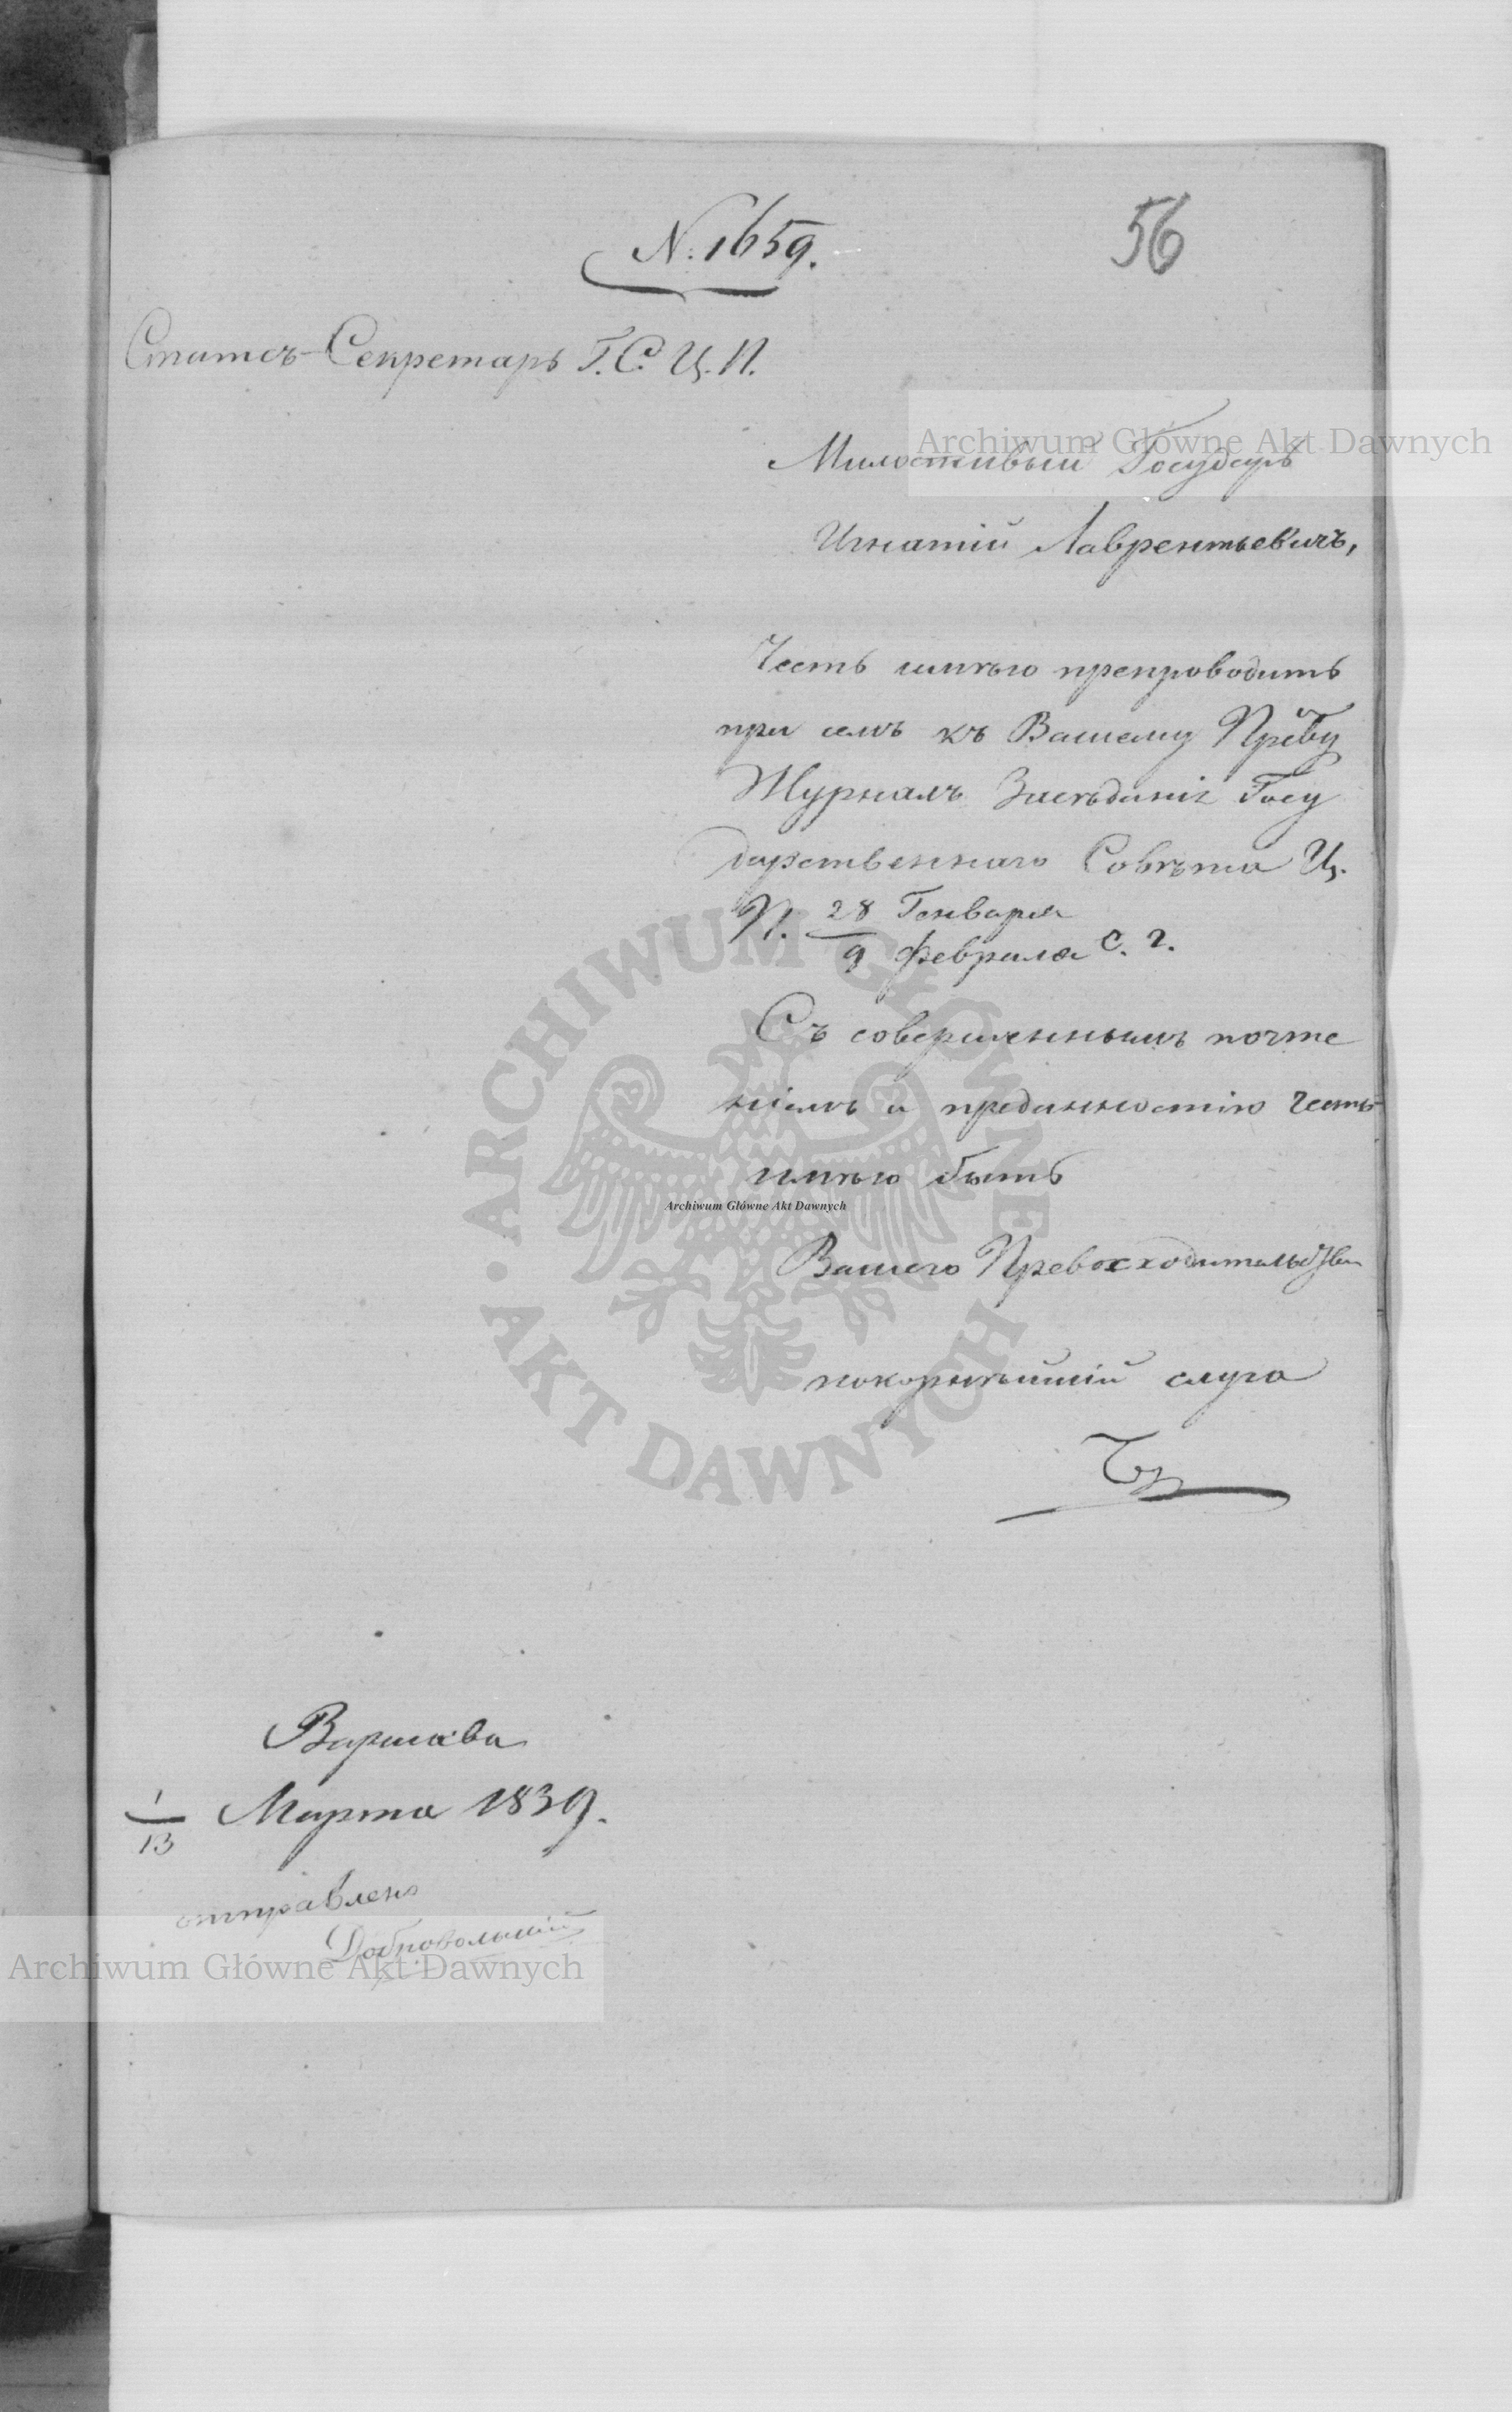 N. 1659.
56
Статсъ-Секретарь Г. С. Ц. П.
Милостивый Государь
Игнатій Лаврентьевичъ,
Честь имѣю препроводить
при семъ къ Вашему Прев̃у
Журналъ Засѣданія Госу
дарственнаго Совѣта Ц.
П. 28 Генваря
9 Февраля с. г.
Съ совершеннымъ почте
ніемъ и преданностію честь
имѣю быть
Вашего Превосходительства
покорнѣйшій слуга
Варшава
1/13 Марта 1839.
отправлено
Добровольскій
Archiwum Główne Akt Dawnych
Archiwum Główne Akt Dawnych
Archiwum Główne Akt Dawnych
ARCHIWUM GŁÓWNE
AKT DAWNYCH